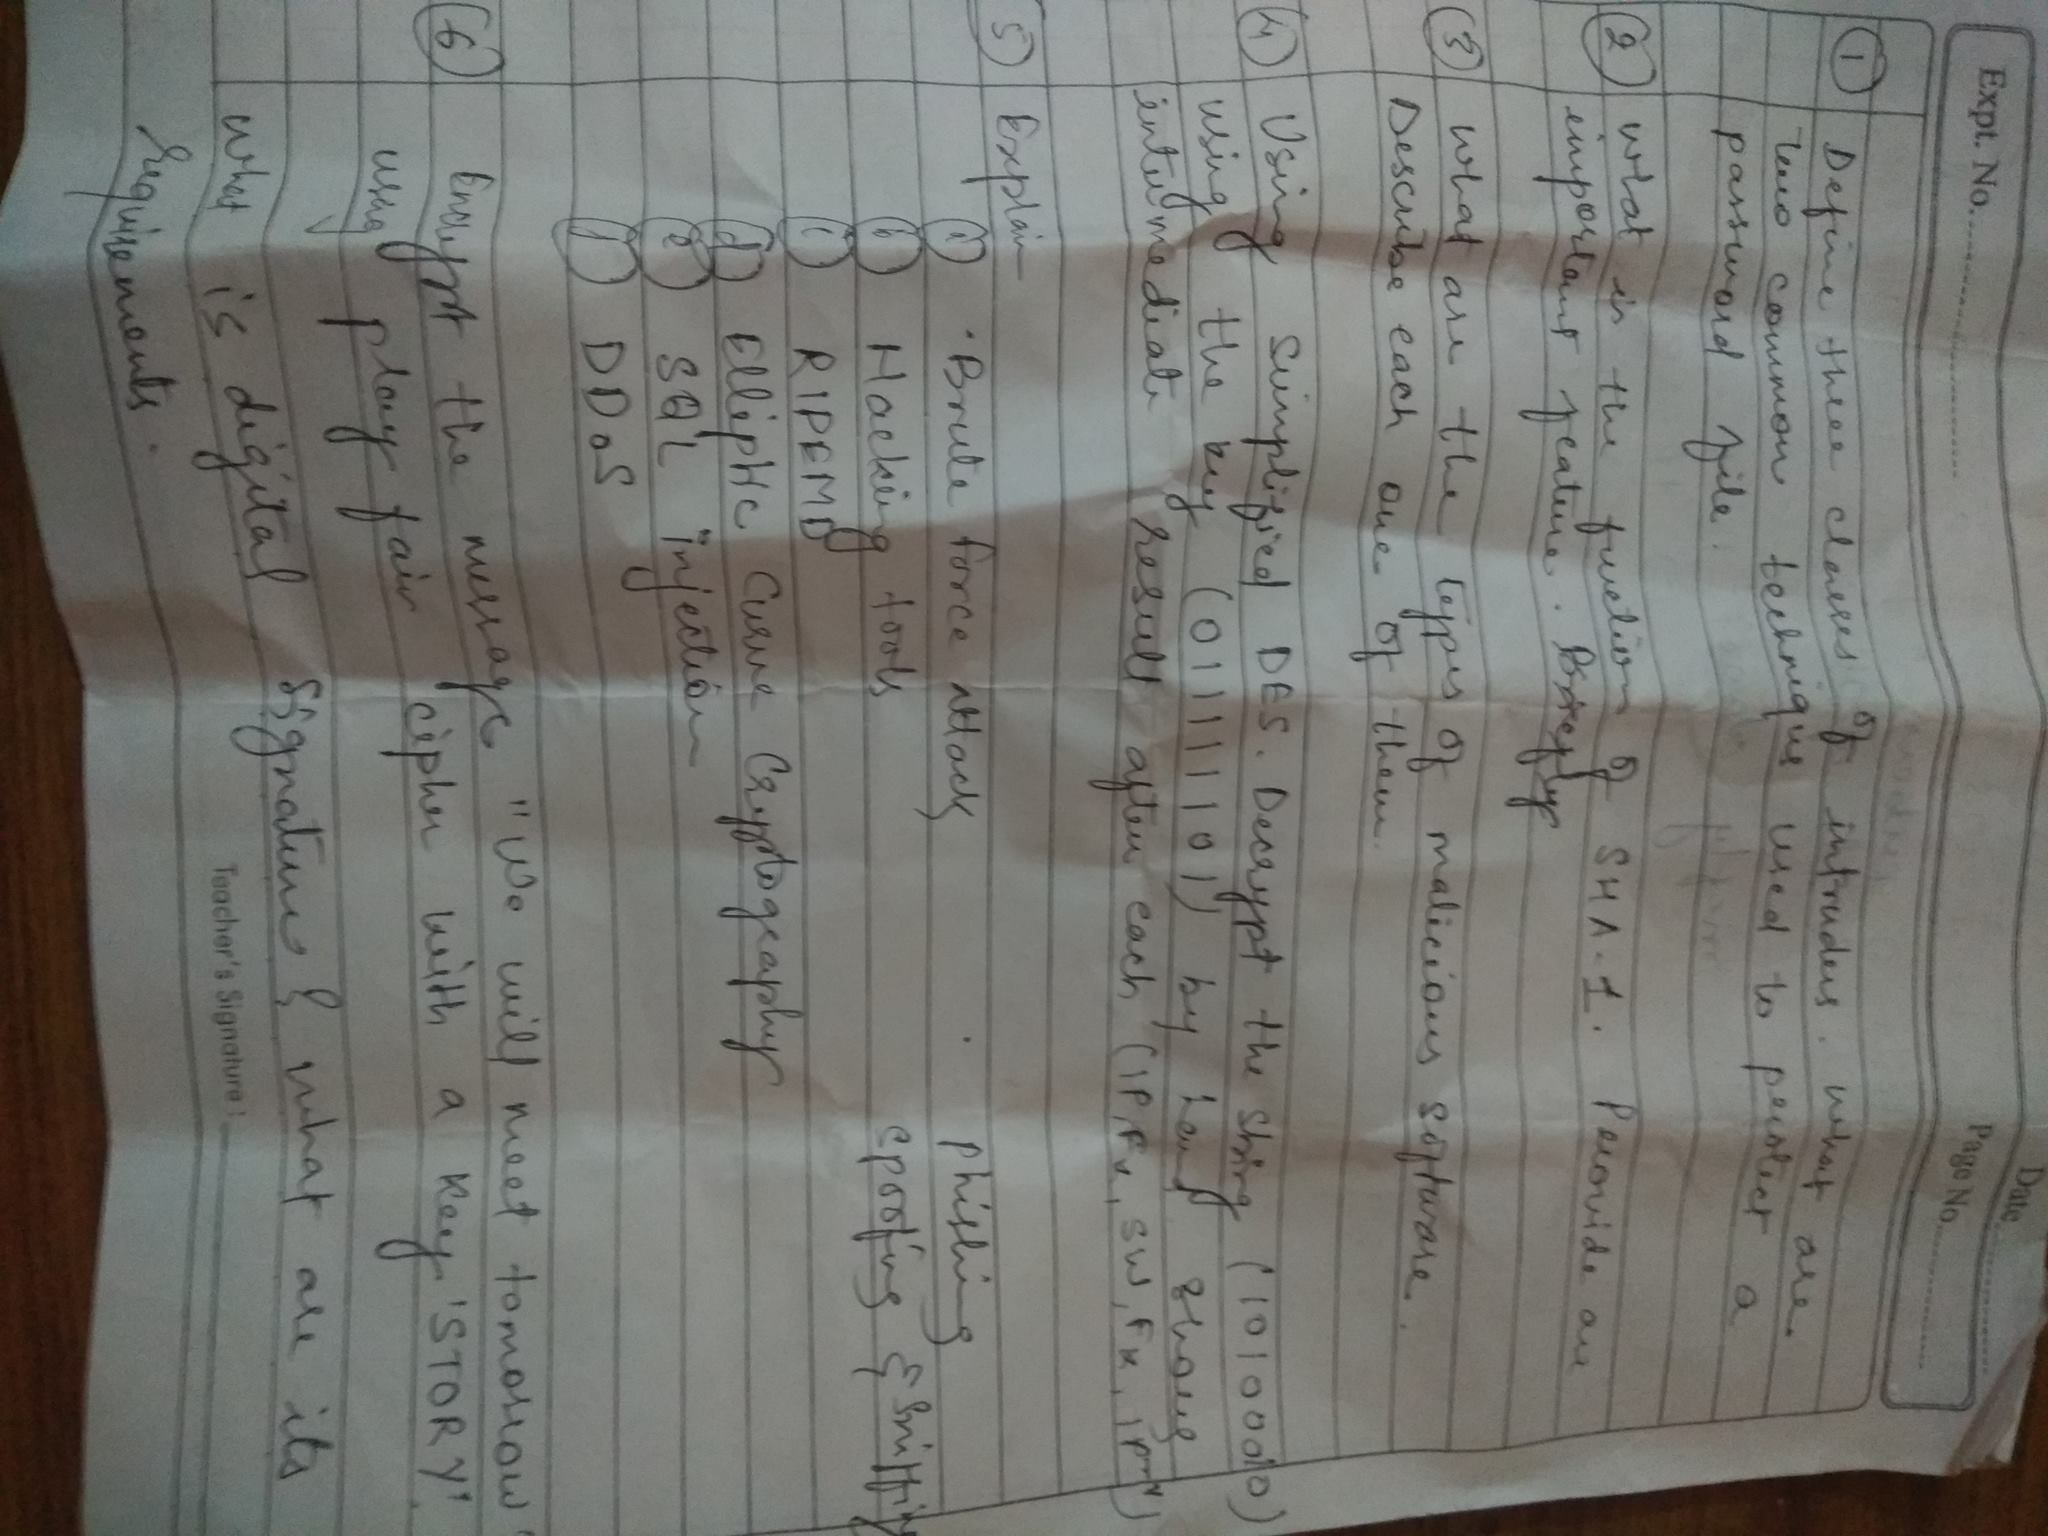 Date
Expt. No.
Page No.
1 Define three classes of intruders. What are
two common technique used to protect a
password file.
2 What is the function of SHA-1. Provide an
important feature. Briefly
3 What are the types of malicious software.
Describe each one of them.
4 Using Simplified DES. Decrypt the string (10100010)
using the key (0111111101) by hand
intermediate result after each (IP, Fk, SW, Fk, IP-1)
5 Explain
a Brute force attack
Phishing
b Hacking tools
spoofing & Sniffing
c RIPEMD
d Elliptic Curve Cryptography
e SQL injection
f DDoS
6 Encrypt the message "We will meet tomorrow"
using play fair cipher with a key 'STORY'.
What is digital signature & what are its
Teacher's Signature :
requirements.